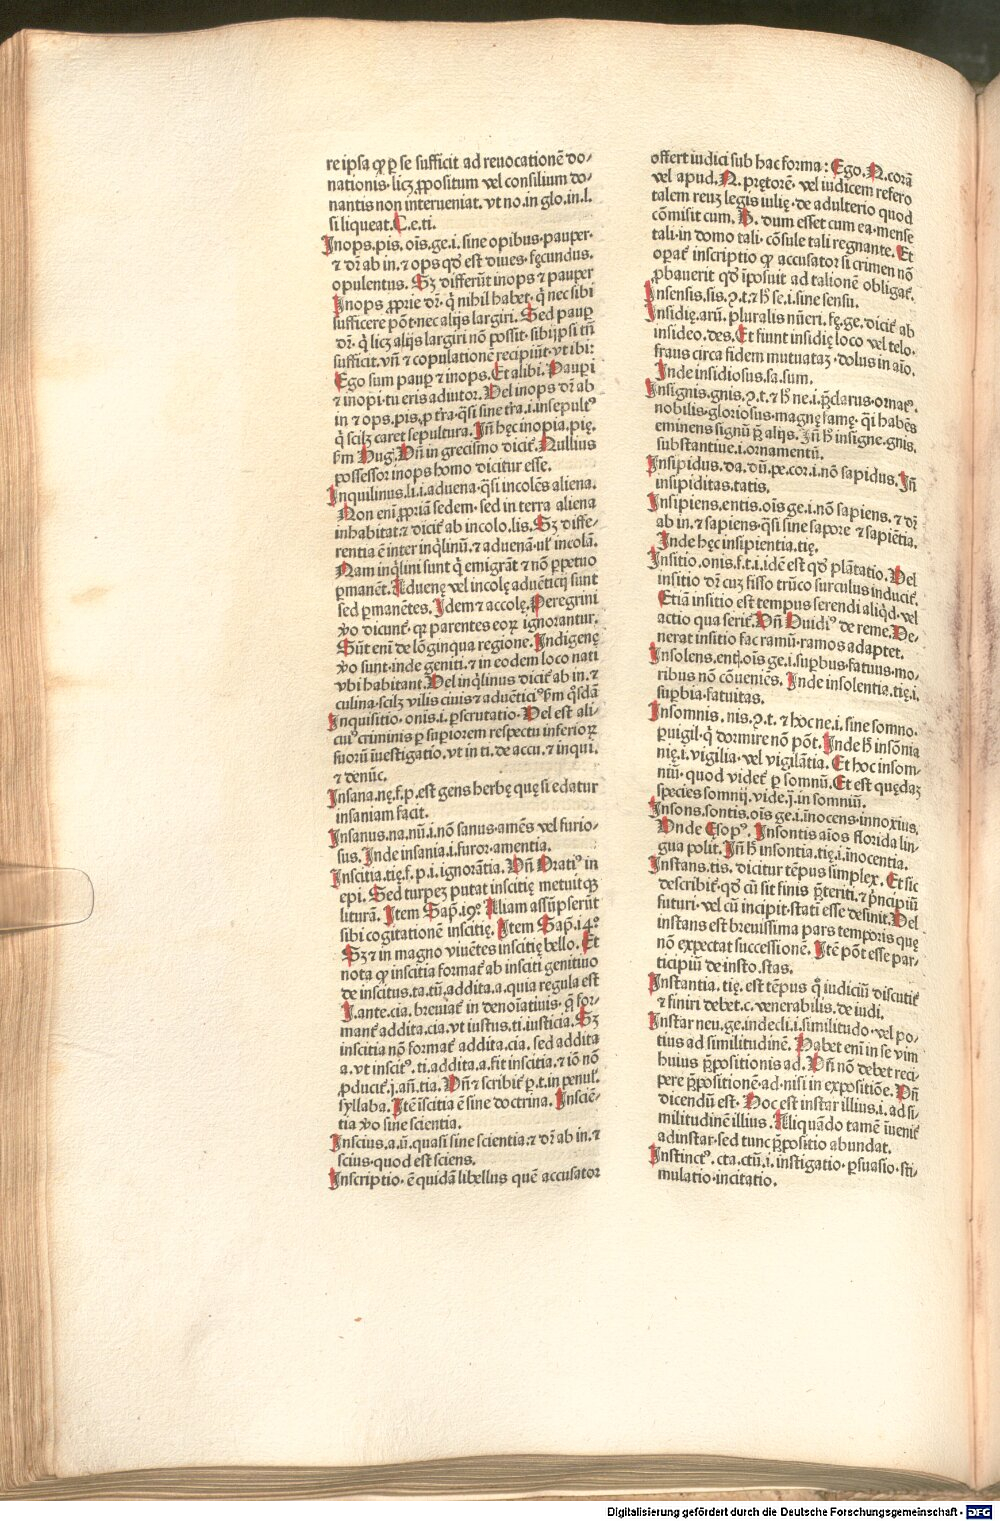 re ipsa ꝙ ꝑ se sufficit ad reuocationē do⸗
nationis·licꝫ ꝓpositum vel consilium do⸗
nantis non interueniat. vt no. in glo. in. l.
si liqueat. C. e. ti.
Inops. pis. oīs. ge. i. sine opibus·pauper·
⁊ dr̄ ab in. ⁊ ops qd̓ est diues·fęcundus.
opulentus. Sꝫ differūt inops ⁊ pauper
Inops ꝓprie dr̄· q̇ nihil habet· q̇ nec sibi
sufficere pōt·nec alijs largiri. Sed paup̱
dr̄· q̇ licꝫ alijs largiri nō possit·sibijpsi tn̄
sufficit. vn̄ ⁊ copulationē recipiūt·vt ibi:
Ego sum paup̱ ⁊ inops. Et alibi. Paup̱i
⁊ inopi·tu eris adiutor. Vel inops dr̄ ab
in ⁊ ops. pis. ꝑ tr̄a·q̄si sine tr̄a·i. insepultꝰ
q̇ scilꝫ caret sepultura. In̄ hęc inopia. pię.
ẜm Hug. Vn̄ in grecismo dicit᷑. Nullius
possessor inops homo dicitur esse.
Inquilinus. li. i. aduena·q̄si incolēs aliena.
Non eni ꝓpriā sedem·sed in terra aliena
inhabitat. ⁊ dicit᷑ ab incolo. lis. Sꝫ diffe⸗
rentia ē inter inq̇linū. ⁊ aduenā·ul̓ incolā.
Nam inq̇lini sunt q̇ emigrāt ⁊ nō ꝑpetuo
ꝑmanēt. Aduenę vel incolę aduēticij sunt
sed ꝑmanētes. Idem ⁊ accolę. Peregrini
v̊o dicunt᷑· qꝛ parentes eoꝝ ignorantur.
Sūt eni de lōginqua regione. Indigenę
v̊o sunt·inde geniti. ⁊ in eodem loco nati
vbi habitant. Vel inq̇linus dicit᷑ ab in. ⁊
culina·scilꝫ vilis ciuis ⁊ aduēticiꝰ ẜm q̄sdā
Inquisitio·onis. i. ꝑscrutatio·Vel est ali⸗
cuiꝰ criminis ꝑ suꝑiorem respectu inferioꝝ
suorū īuestigatio. vt in ti. de accu. ⁊ inqui.
⁊ denūc.
Insana. nę. f. p. est gens herbę quę si edatur
insaniam facit.
Insanus. na. nū. i. nō sanus·amēs vel furio⸗
sus. Inde insania. i. furor·amentia.
Inscitia. tię. f. p. i. ignorātia. Vn̄ Oratiꝰ in
epi. Sed turpeꝫ putat inscitię metuitqꝫ
liturā. Item Sap̄. 19ͦ Aliam assūpserūt
sibi cogitationē inscitię. Item Sap̄. 14ͦ
Sꝫ ⁊ in magno viuētes inscitię bello. Et
nota ꝙ inscitia format᷑ ab insciti genitiuo
de inscitus. ta. tū. addita. a. quia regula est
I. ante. cia. breuiat᷑ in denoīatiuis· q̄ for⸗
mant᷑ addita. cia. vt iustus. ti. iusticia. Sꝫ
inscitia nō format᷑ addita. cia. sed addita
a. vt inscitꝰ. ti. addita. a. fit inscitia. ⁊ iō nō
ꝓducit᷑. i. an̄. tia. Vn̄ ⁊ scribit᷑ ꝑ. t. in penul̓.
syllaba. Itē īscitia ē sine doctrina. Insciē⸗
tia v̊o sine scientia.
Inscius. a. ū. quasi sine scientia. ⁊ dr̄ ab in. ⁊
scius·quod est sciens.
Inscriptio· ē quidā libellus quē accusator
offert iudici sub hac forma: Ego. N. corā
vel apud. N. prętorē· vel iudicem refero
talem reuꝫ legis iulię·de adulterio quod
cōmisit cum. B. dum esset cum ea·mense
tali·in domo tali·cōsule tali regnante. Et
oꝑat᷑ inscriptio ꝙ accusator si crimen nō
ꝓbauerit qd̓ īposuit ad talionē obligat᷑.
Insensis. sis. ꝯ. t. ⁊ h̄ se. i. sine sensu.
Insidię. arū. pluralis nūeri. fę. ge. dicit᷑ ab
insideo. des. Et fiunt insidię loco vel telo·
fraus circa fidem mutuataꝫ·dolus in aīo.
Inde insidiosus. sa. sum.
Insignis. gnis. ꝯ. t. ⁊ h̄ ne. i. p̄clarus·ornatꝰ.
nobilis·gloriosus·magnę famę· q̄i habēs
eminens signū p̄ alijs. In̄ h̄ insigne·gnis.
substantiue. i. ornamentū.
Insipidus. da. dū. pe. cor. i. nō sapidus. In̄
insipiditas. tatis.
Insipiens. entis. oīs ge. i. nō sapiens. ⁊ dr̄
ab in. ⁊ sapiens·q̄si sine sapore ⁊ sapiētia.
Inde hęc insipientia. tię.
Insitio. onis. f. t. i. idē est qd̓ plātatio. Vel
insitio dr̄ cuꝫ fisso trūco surculus inducit᷑.
Etiā insitio est tempus serendi aliq̇d·vel
actio qua serit᷑. Vn̄ Ouidiꝰ de reme. Ve⸗
nerat insitio fac ramū·ramos adaptet.
Insolens. enti̓. oīs ge. i. suꝑbus·fatuus·mo⸗
ribus nō cōueniēs. Inde insolentia. tię. i.
suꝑbia·fatuitas.
Insomnis. nis. ꝯ. t. ⁊ hoc ne. i. sine somno·
ꝑuigil· q̇ dormire nō pōt. Inde h̄ insōnia
nię. i. vigilia·vel vigilātia. Et hoc insom⸗
niū· quod videt᷑ ꝑ somnū. Et est quędaꝫ
species somnij. vide. j. in somniū.
Insons. sontis. oīs ge. i. inocens·innoxius.
Vnde Esopꝰ. Insontis aīos florida lin⸗
gua polit. In̄ h̄ insontia. tię. i. inocentia.
Instans. tis. dicitur tēpus simplex. Et sic
describit᷑· qd̓ cū sit finis p̄teriti. ⁊ p̄ncipiū
futuri·vel cū incipit·stati esse desinit. Vel
instans est breuissima pars temporis quę
nō expectat successionē. Itē pōt esse par⸗
ticipiū de insto. stas.
Instantia. tię. est tēpus q̊ iudiciū discutit᷑
⁊ finiri debet. c. venerabilis. de iudi.
Instar neu. ge. indecli. i. similitudo·vel po⸗
tius ad similitudinē. Habet eni in se vim
huius p̄positionis ad. Vn̄ nō debet reci⸗
pere p̄positionē·ad·nisi in expositiōe. Vn̄
dicendū est· Hoc est instar illius. i. ad si⸗
militudinē illius. Aliquādo tamē īuenit᷑
adinstar·sed tunc p̄positio abundat.
Instinctꝰ. cta. ctū. i. instigatio·ꝑsuasio·sti⸗
mulatio·incitatio.
Digitalisierung gefördert durch die Deutsche Forschungsgemeinschaft - DFG